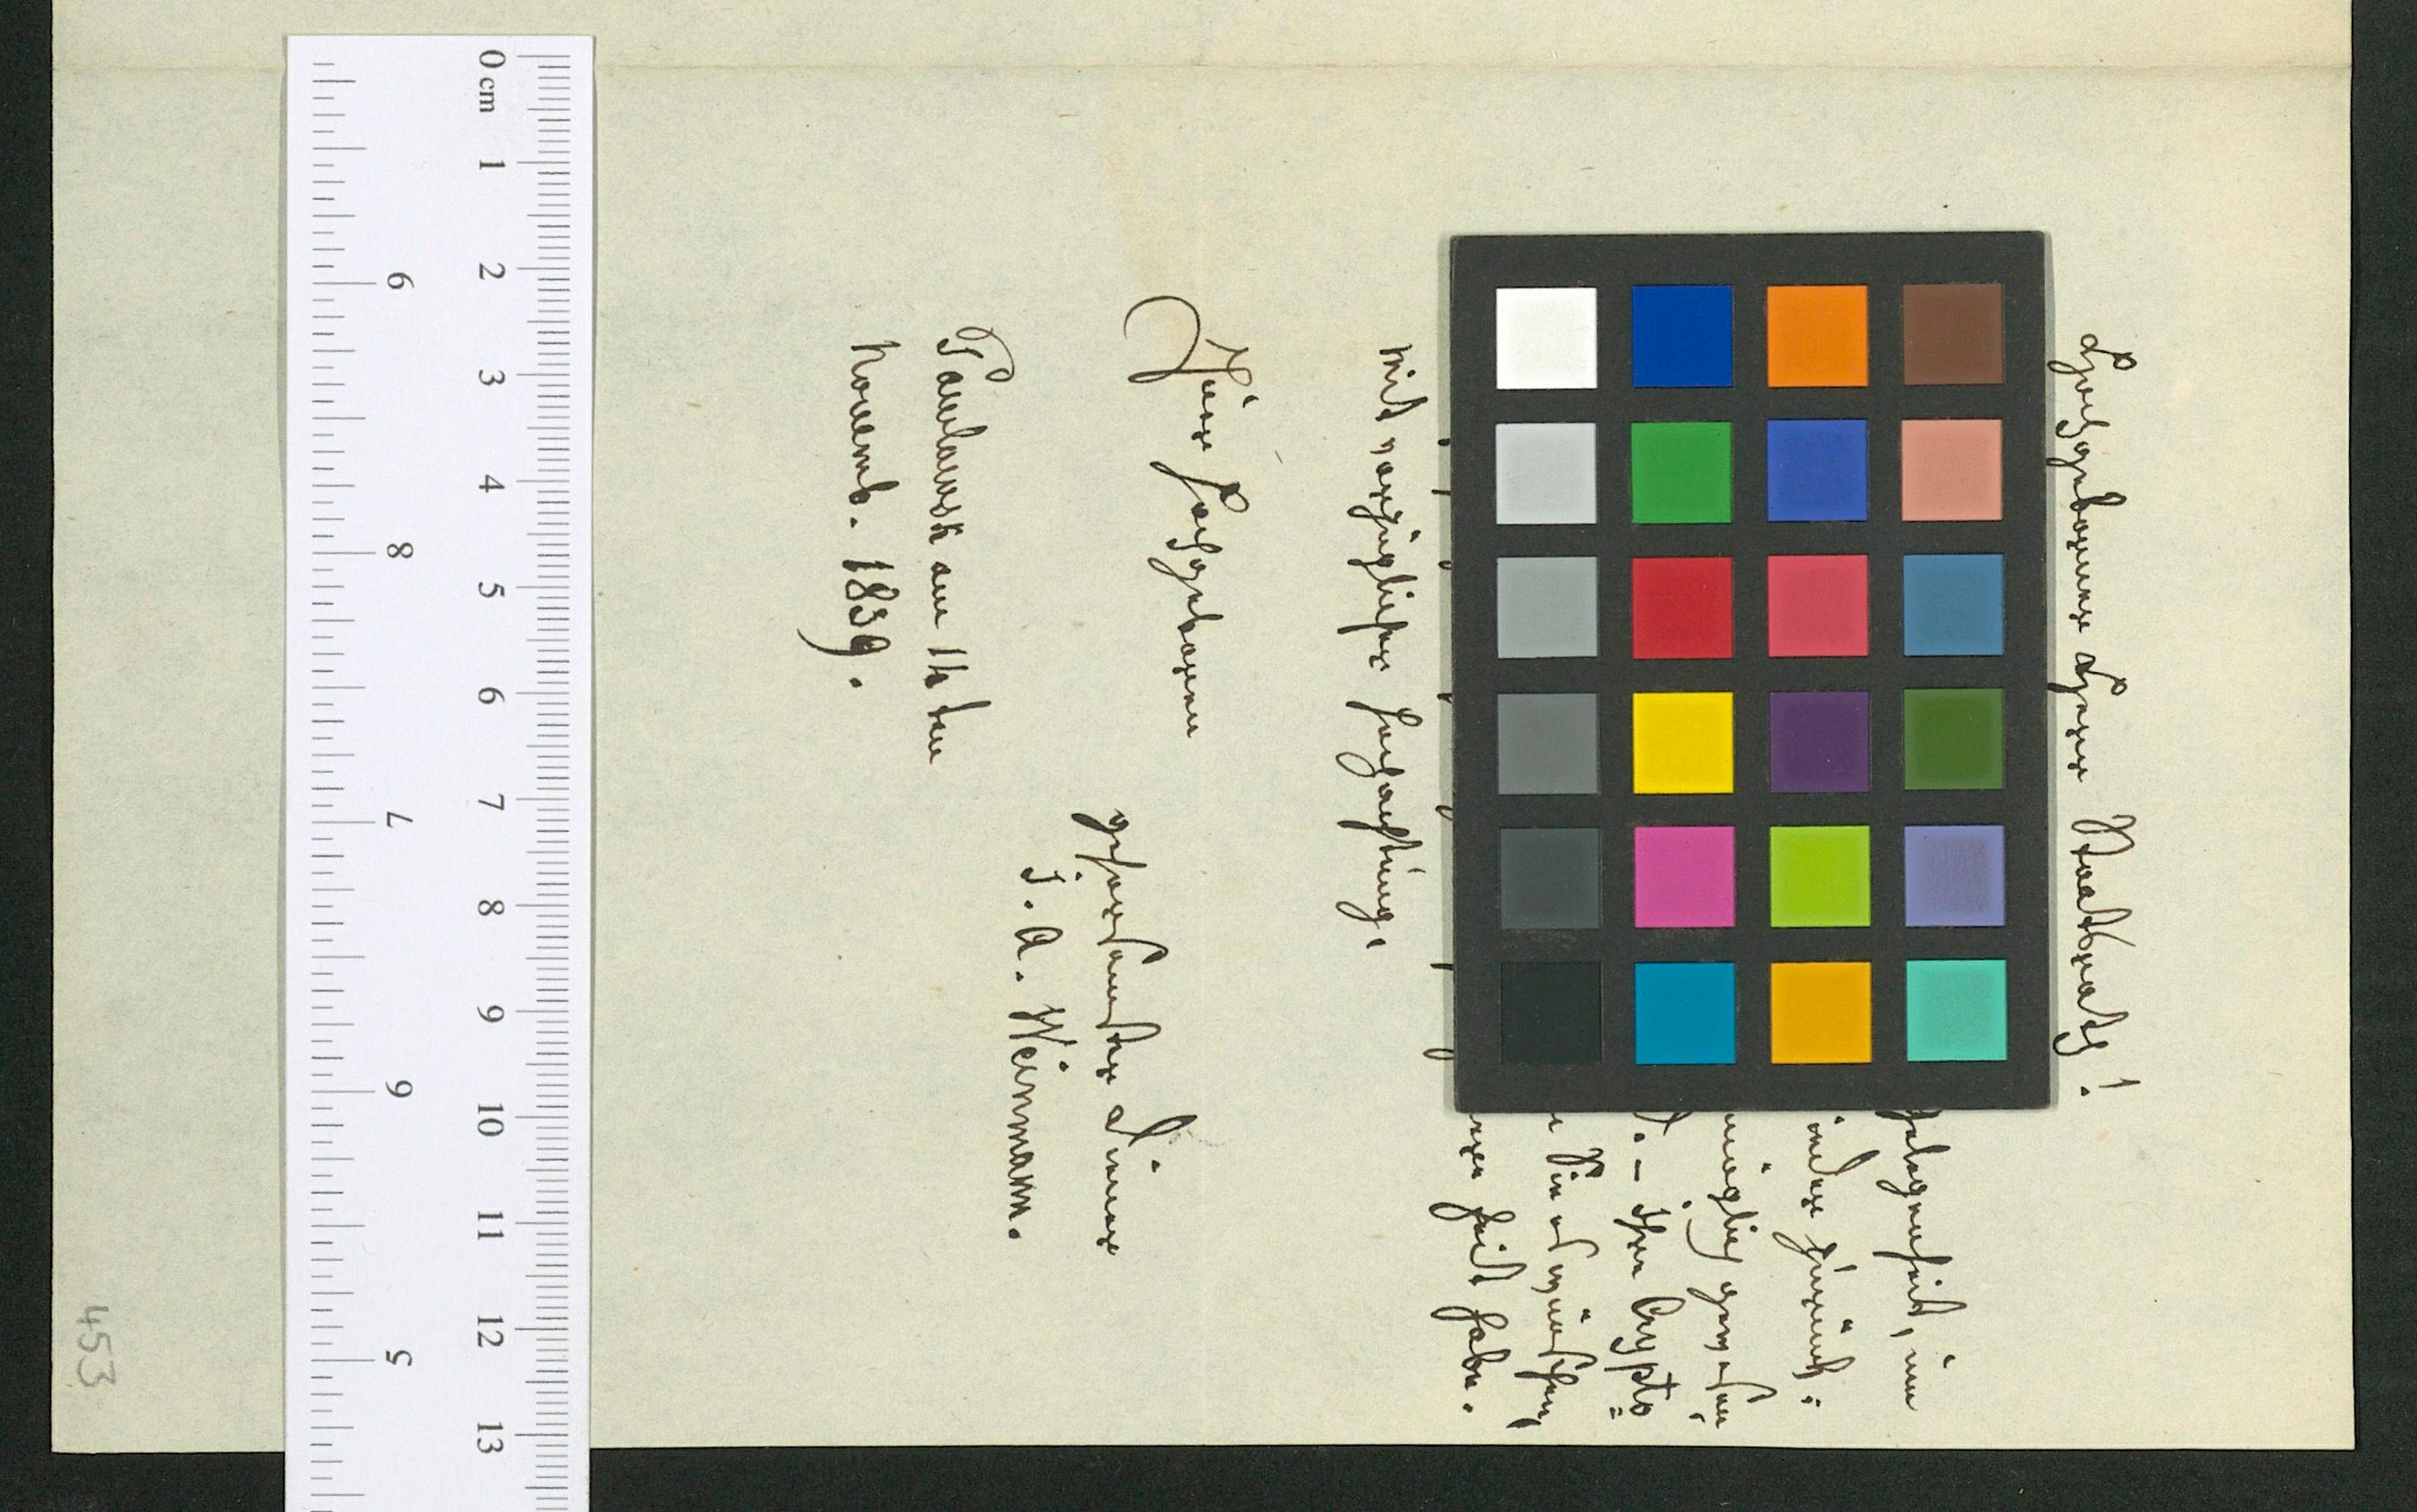 Hochgeborener Herr Staatsrath!
gelegenheit, um
zurück:
möglich gewesen
. – Ihre Crypto=
Sie es wünschen,
Zeit habe.
Mit vorzüglicher Hochachtung,
Hochgeboren
gehorsamster Diener
J. A. Weinmann.
Pawlowsk am 14 ten
Novemb. 1839.
453
0 cm 1 2 3 4 5 6 7 8 9 10 11 12 13
6
8
7
9
5